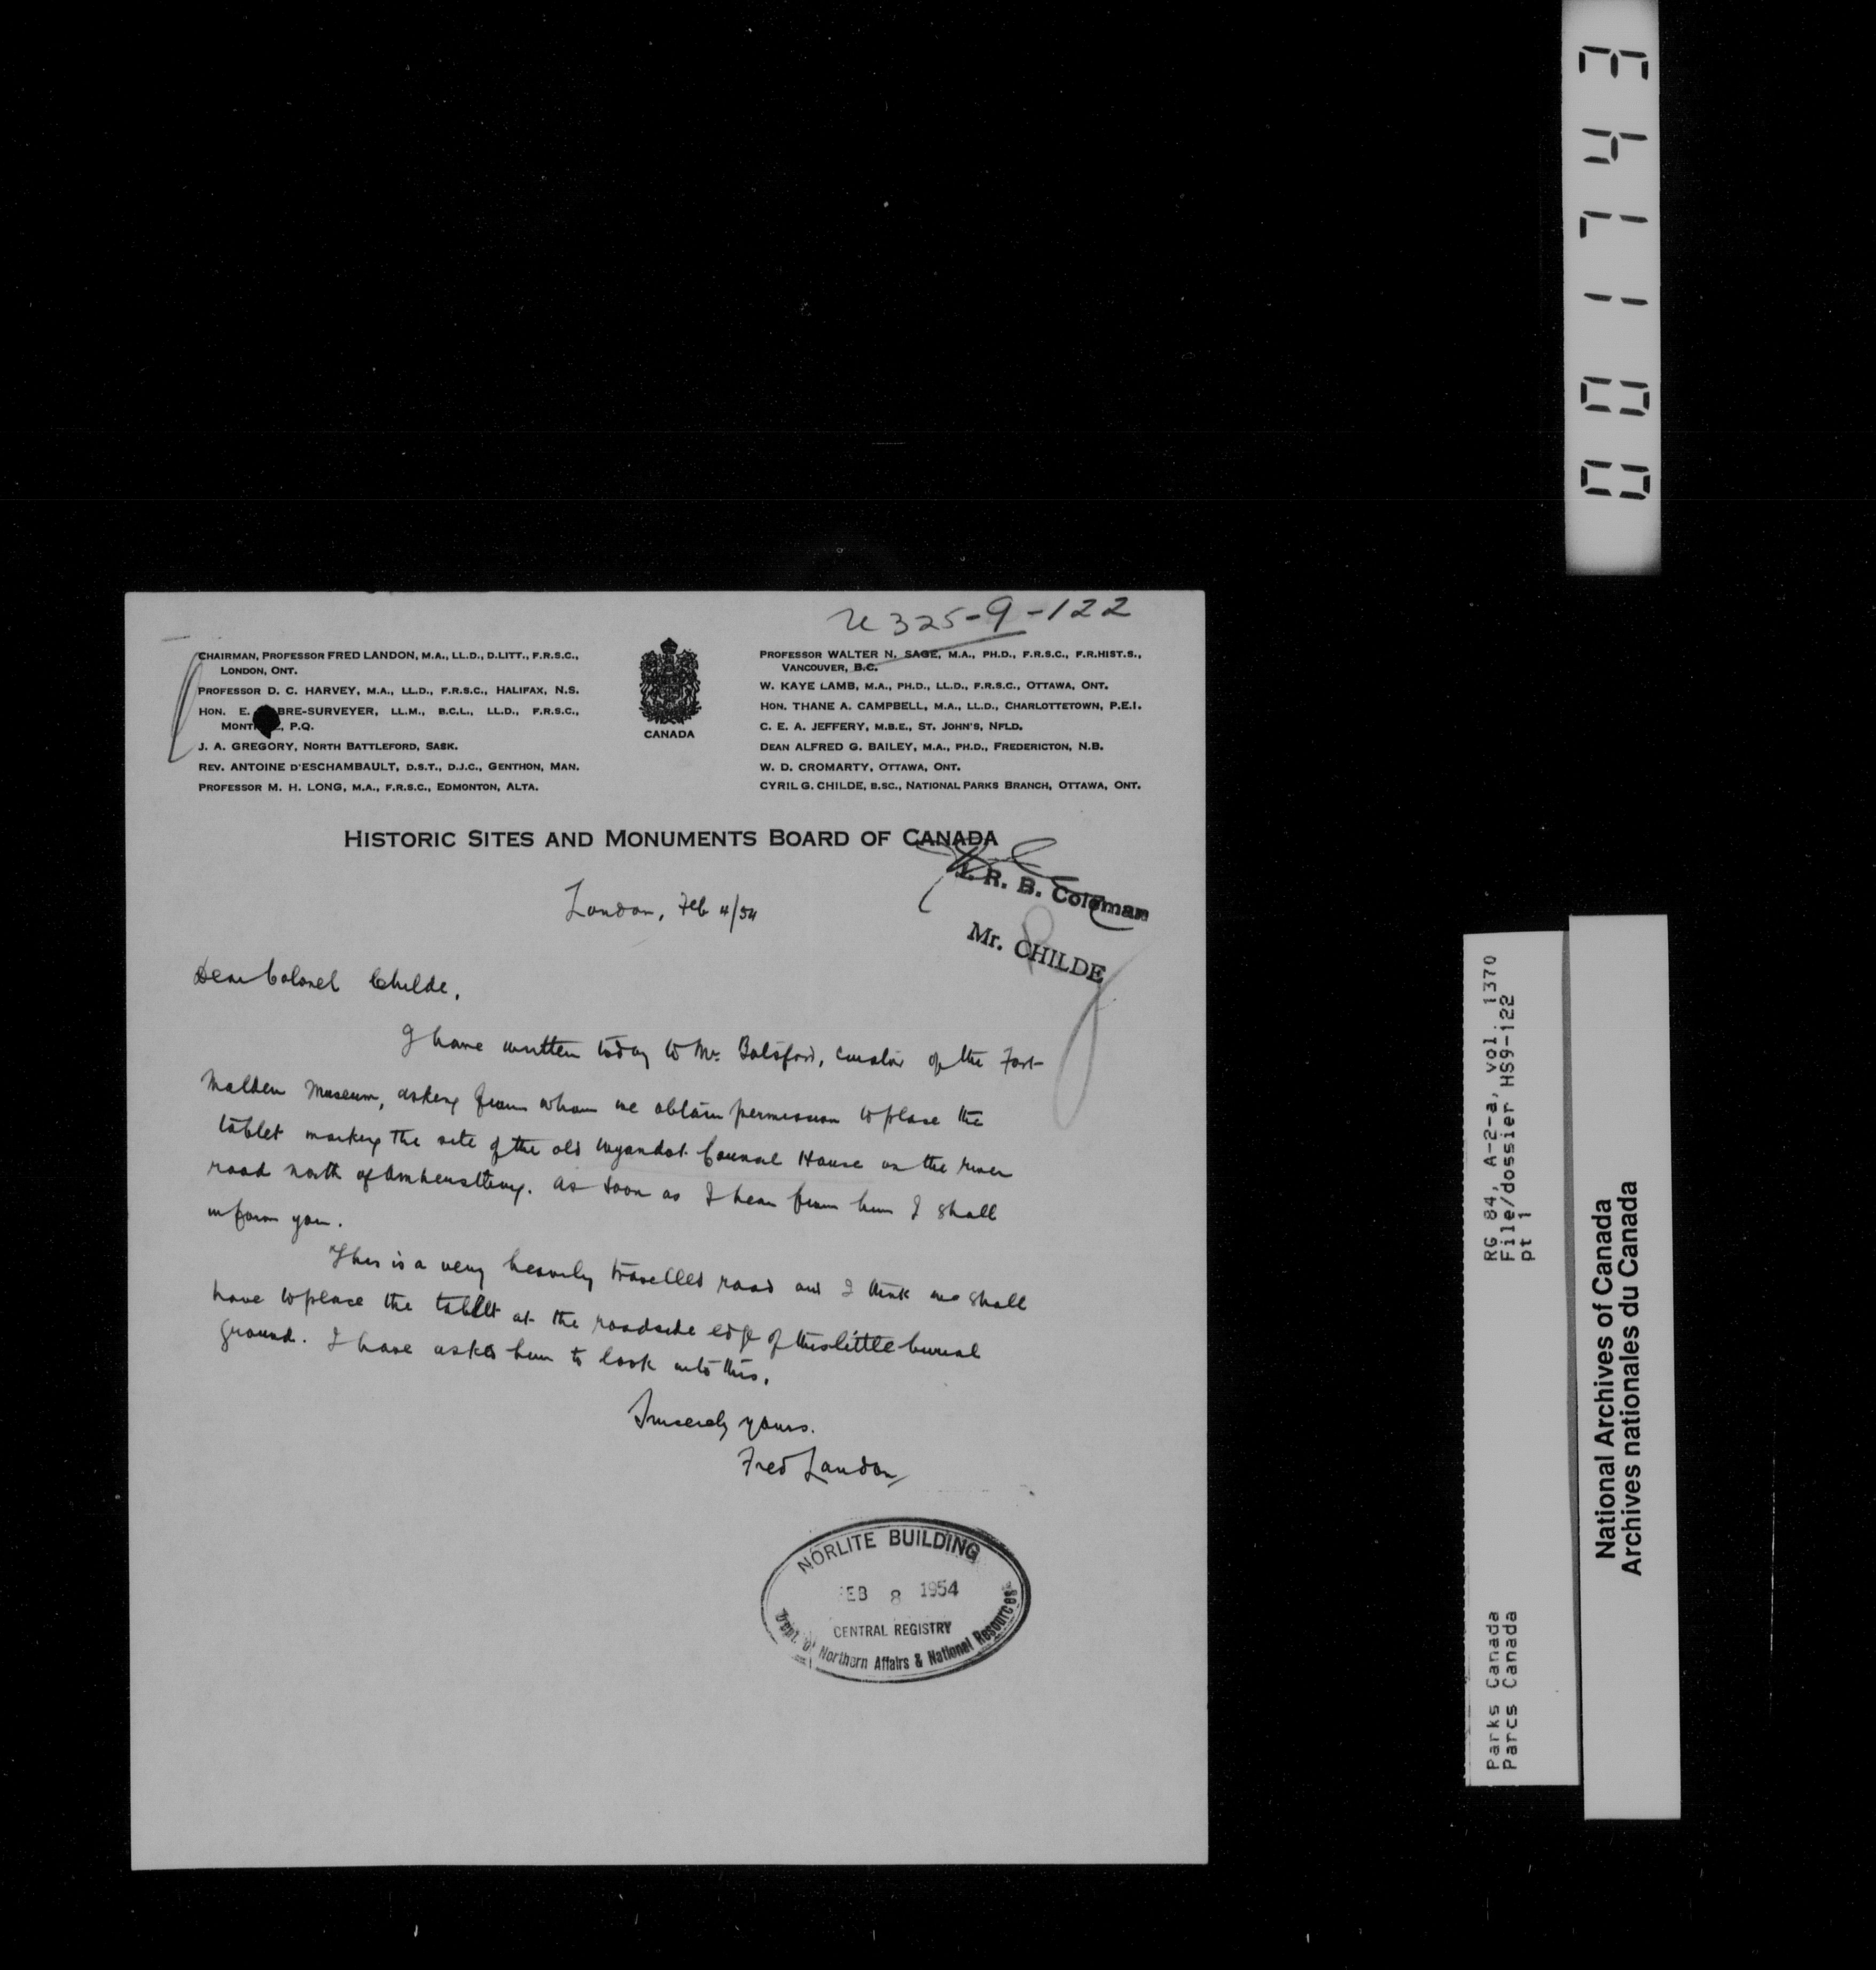 U 325-9-122
CHAIRMAN, PROFESSOR FRED LANDON, M.A., LL.D., D.LITT., F.R.S.C.,
LONDON, ONT.
PROFESSOR D. C. HARVEY, M.A., LL.D., F.R.S.C., HALIFAX, N.S.
HON. E. BRE-SURVEYER, LL.M., B.C.L., LL.D., F.R.S.C.,
MONT , P.Q.
J. A. GREGORY, NORTH BATTLEFORD, SASK.
REV. ANTOINE D'ESCHAMBAULT, D.S.T., D.J.C., GENTHON, MAN.
PROFESSOR M. H. LONG, M.A., F.R.S.C., EDMONTON, ALTA.
CANADA
PROFESSOR WALTER N. SAGE, M.A., PH.D., F.R.S.C., F.R.HIST.S.,
VANCOUVER, B.C.
W. KAYE LAMB, M.A., PH.D., LL.D., F.R.S.C., OTTAWA, ONT.
HON. THANE A. CAMPBELL, M.A., LL.D., CHARLOTTETOWN, P.E.I.
C. E. A. JEFFERY, M.B.E., ST. JOHN'S, NFLD.
DEAN ALFRED G. BAILEY, M.A., PH.D., FREDERICTON, N.B.
W. D. CROMARTY, OTTAWA, ONT.
CYRIL G. CHILDE, B.SC., NATIONAL PARKS BRANCH, OTTAWA, ONT.
HISTORIC SITES AND MONUMENTS BOARD OF CANADA
J. R. B. Coleman
Mr. CHILDE
London, Feb 4/54
Dear Colonel Childe,
I have written today to Mr. Botsford, curator of the Fort
Malden Museum, asking from whom we obtain permission to place the
tablet marking the site of the old Wyandot Council House on the river
road north of Amherstburg. As soon as I hear from him I shall
inform you.
This is a very heavily travelled road and I think we shall
have to place the tablet at the roadside edge of this little burial
ground. I have asked him to look into this.
Sincerely yours.
Fred Landon
NORLITE BUILDING
FEB 8 1954
CENTRAL REGISTRY
Dept. of Northern Affairs & National Resources
001743
RG 84, A-2-a, vol. 1370
File/dossier HS9-122
pt 1
Parks Canada
Parcs Canada
National Archives of Canada
Archives nationales du Canada